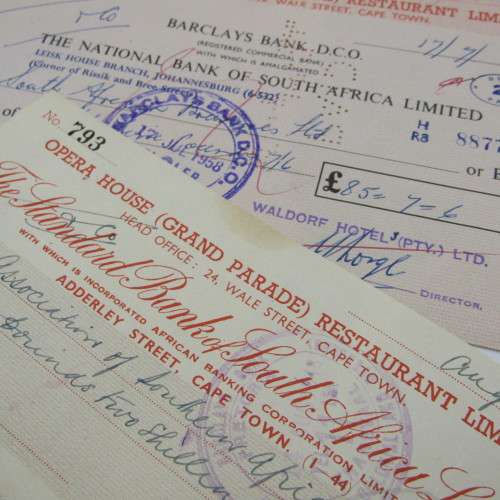 RESTAURANT LIM
WALE STREET, CAPE TOWN.
& Co
17/7/
BARCLAYS BANK, D.C.O.
(REGISTERED COMMERCIAL BANK)
WITH WHICH IS AMALGAMATED
THE NATIONAL BANK OF SOUTH AFRICA LIMITED
LEISK HOUSE BRANCH, JOHANNESBURG (6-532)
(Corner of Rissik and Bree Streets)
H
RB 8877
South African Ltd
or B
BARCLAYS BANK D.C.O.
1958
£ 85 = 7 - 6
WALDORF HOTELS (PTY.) LTD.
DIRECTOR.
No. 793
OPERA HOUSE (GRAND PARADE) RESTAURANT LIM
HEAD OFFICE: 24, WALE STREET, CAPE TOWN.
& Co
Aug
The Standard Bank of South Africa L
WITH WHICH IS INCORPORATED AFRICAN BANKING CORPORATION LIMIT
ADDERLEY STREET, CAPE TOWN. (1-44)
Association of Southern Afri
Pounds Two Shillin